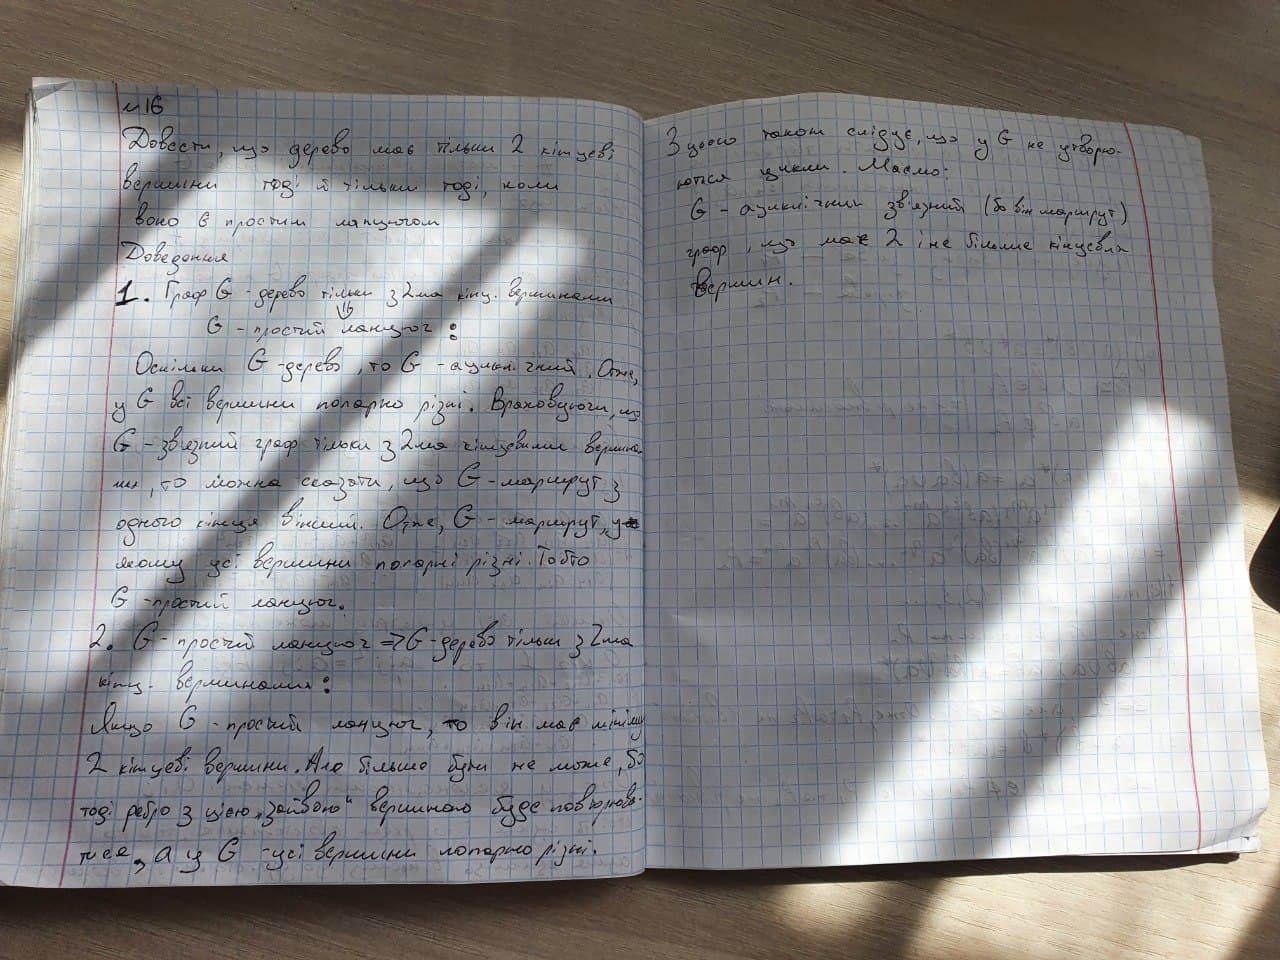 №16
Довести, що дерево має тільки 2 кінцеві
вершини тоді й тільки тоді, коли
воно є простим ланцюгом
Доведення
1. Граф G - дерево тільки з 2ма кінц. вершинами
⇓
G - простий ланцюг:
Оскільки G - дерево, то G - ациклічний. Отже,
у G всі вершини попарно різні. Враховуючи, що
G - зв'язний граф тільки з 2ма кінцевими вершина-
ми, то можна сказати, що G - маршрут з
одного кінця в інший. Отже, G - маршрут, у
якому усі вершини попарні різні. Тобто
G - простий ланцюг.
2. G - простий ланцюг => G - дерево тільки з 2ма
кінц. вершинами:
Якщо G - простий ланцюг, то він має мінімум
2 кінцеві вершини. Але більше бути не може, бо
тоді ребро з цією "зайвою" вершиною буде повторюва-
тися, а у G - усі вершини попарно різні.
З цього також слідує, що у G не утворю-
ються цикли. Маємо:
G - ациклічний зв'язний (бо він маршрут)
граф, що має 2 і не більше кінцевих
вершин.